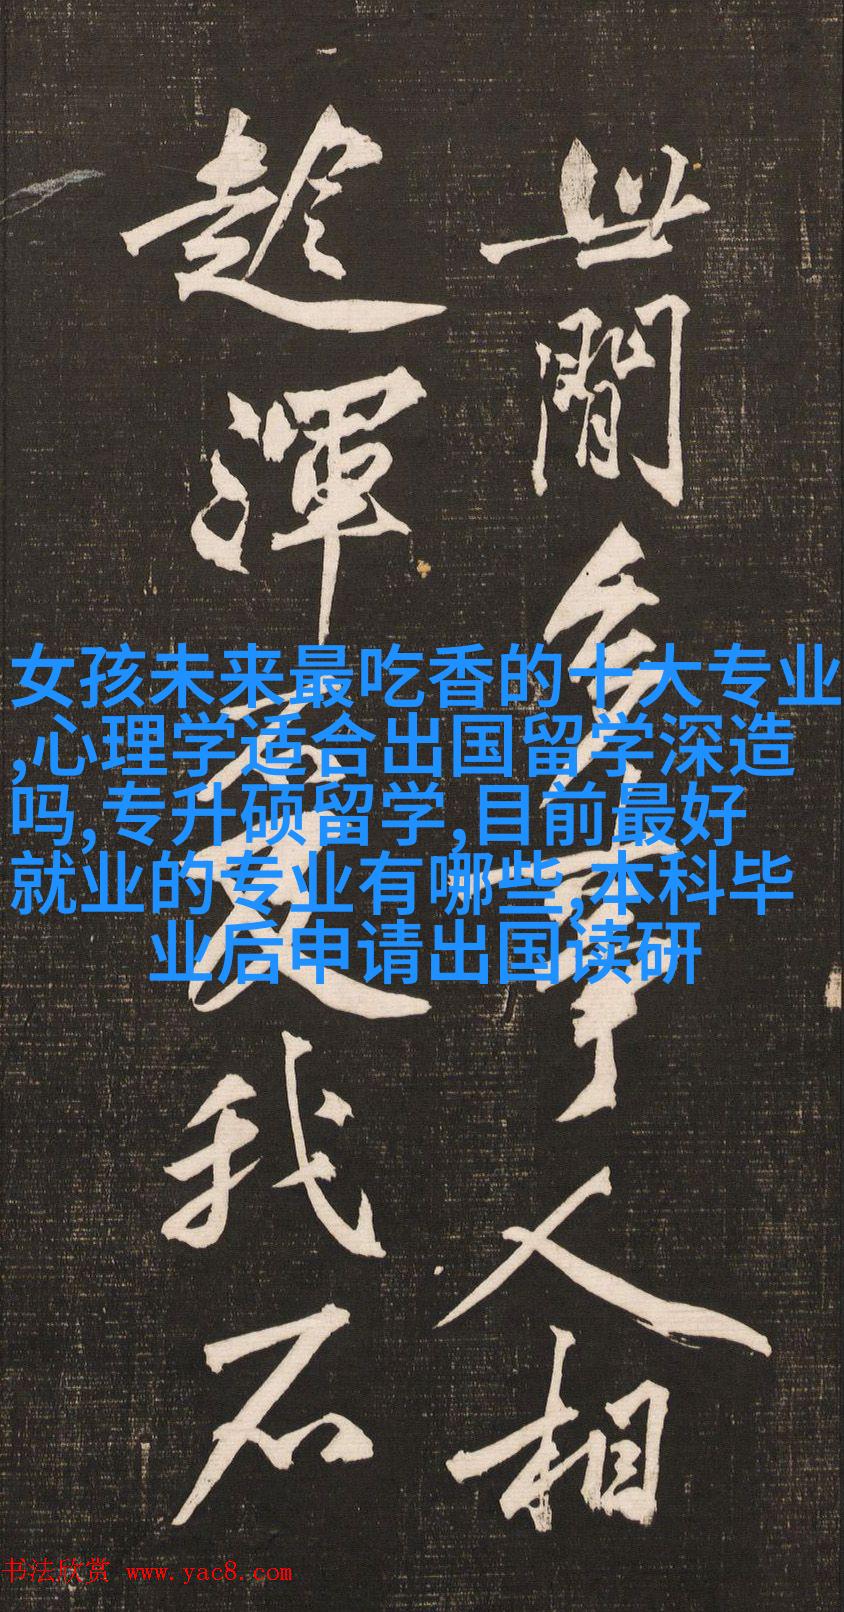 世间多事人相
趁浑不是我不
女孩未来最吃香的十大专业
,心理学适合出国留学深造
吗,专升硕留学,目前最好
就业的专业有哪些,本科毕
业后申请出国读研
书法欣赏 www.yac8.com